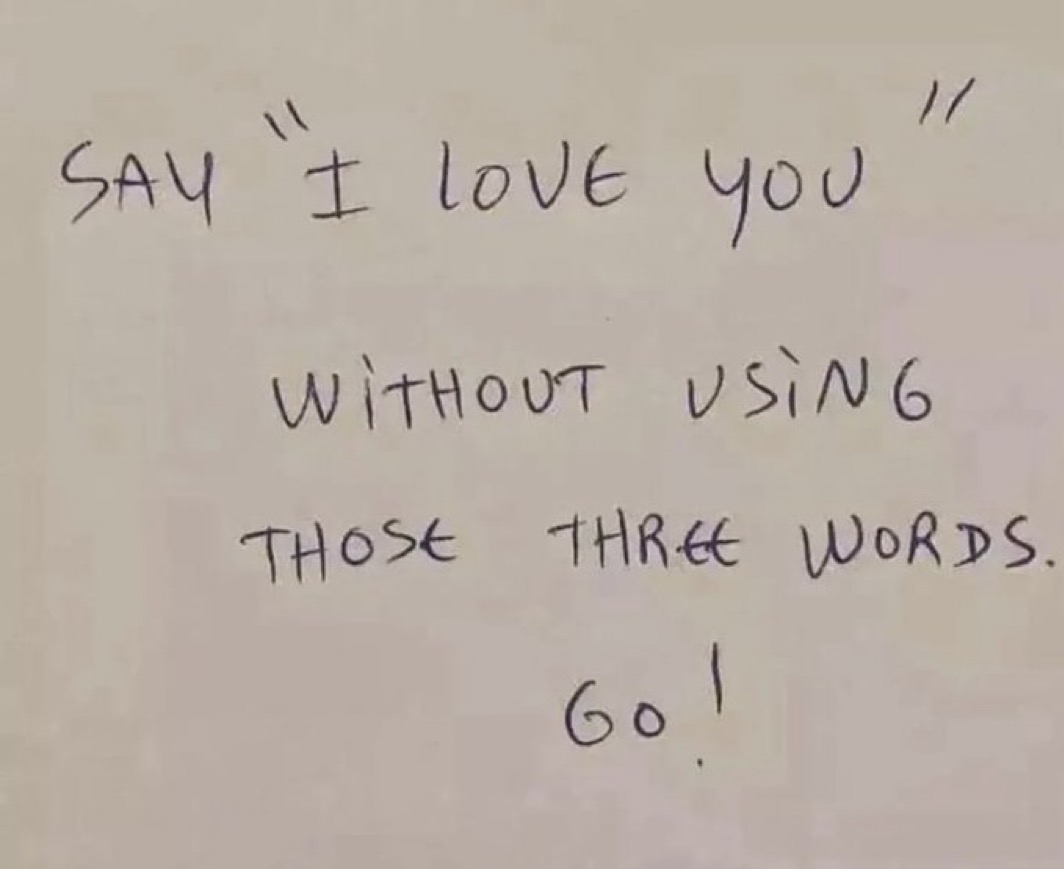 SAY "I LOVE YOU"
WITHOUT USING
THOSE THREE WORDS.
GO!